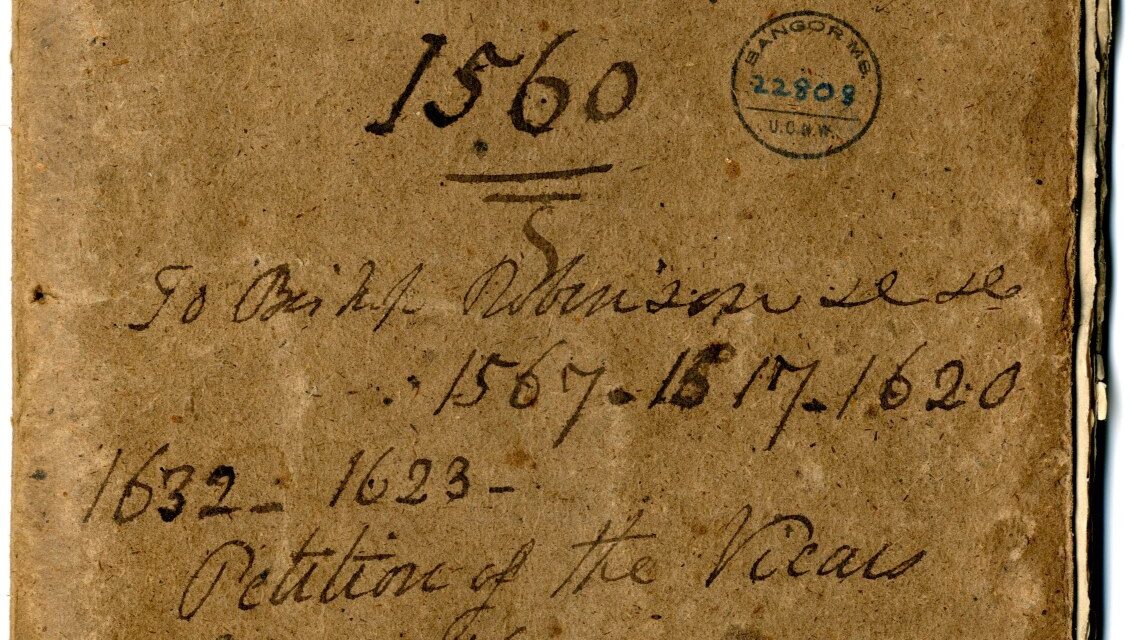 1560
BANGOR MS.
22808
U.C.N.W.
To Bishp Robinson &c &c
1567 - 1617 - 1620
1632 - 1623 -
Petition of the Vicars